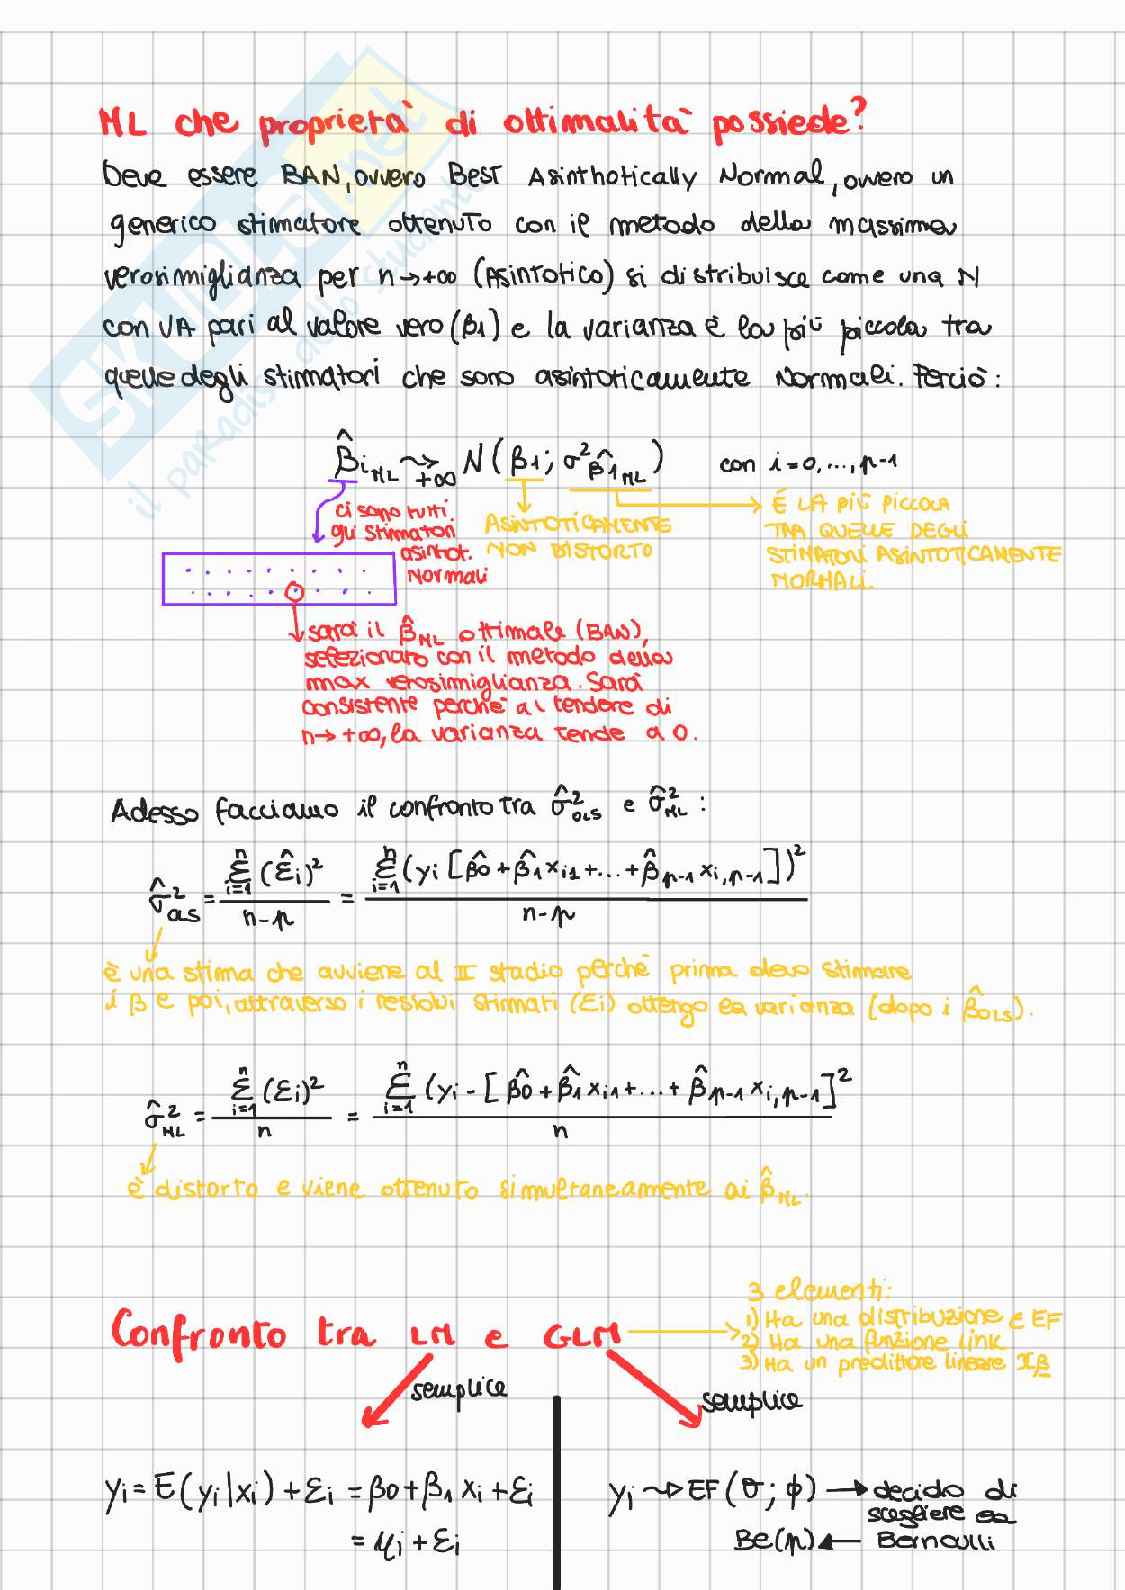 ML che proprietà di ottimalità possiede?
Deve essere BAN, ovvero Best Asinthotically Normal, ovvero un
generico stimatore ottenuto con il metodo della massima
verosimiglianza per n→+∞ (Asintotico) si distribuisce come una N
con VA pari al valore vero (β1) e la varianza è la più piccola tra
quelle degli stimatori che sono asintoticamente Normali. Perciò:
β̂i ML ⇝ +∞ N(β1; σ²β̂1ML) con i=0,...,p-1
ci sono tutti
gli stimatori
asintot.
Normali
ASINTOTICAMENTE
NON DISTORTO
È LA PIÙ PICCOLA
TRA QUELLE DEGLI
STIMATORI ASINTOTICAMENTE
NORMALI.
sarà il β̂ML ottimale (BAN),
selezionato con il metodo della
max verosimiglianza. Sarà
consistente perchè al tendere di
n→+∞, la varianza tende a 0.
Adesso facciamo il confronto tra σ̂²OLS e σ̂²ML:
σ̂²OLS = Σⁿi=1 (ε̂i)² / n-p = Σⁿi=1 (yi [β̂0+β̂1xi1+...+β̂p-1xi,p-1])² / n-p
è una stima che avviene al II stadio perchè prima devo stimare
i β e poi, attraverso i residui stimati (εi) ottengo la varianza (dopo i β̂OLS).
σ̂²ML = Σⁿi=1 (εi)² / n = Σⁿi=1 (yi-[β̂0+β̂1xi1+...+β̂p-1xi,p-1]² / n
è distorto e viene ottenuto simultaneamente ai β̂ML.
Confronto tra LM e GLM
3 elementi:
1) Ha una distribuzione ∈ EF
2) Ha una funzione link
3) Ha un predittore lineare xβ
semplice
semplice
yi = E(yi|xi)+εi = β0+β1xi+εi
= μi+εi
yi ~ EF(θ; ϕ) → decido di
scegliere la
Be(p) ← Bernoulli
SKUOLA.net
il paradiso dello studente